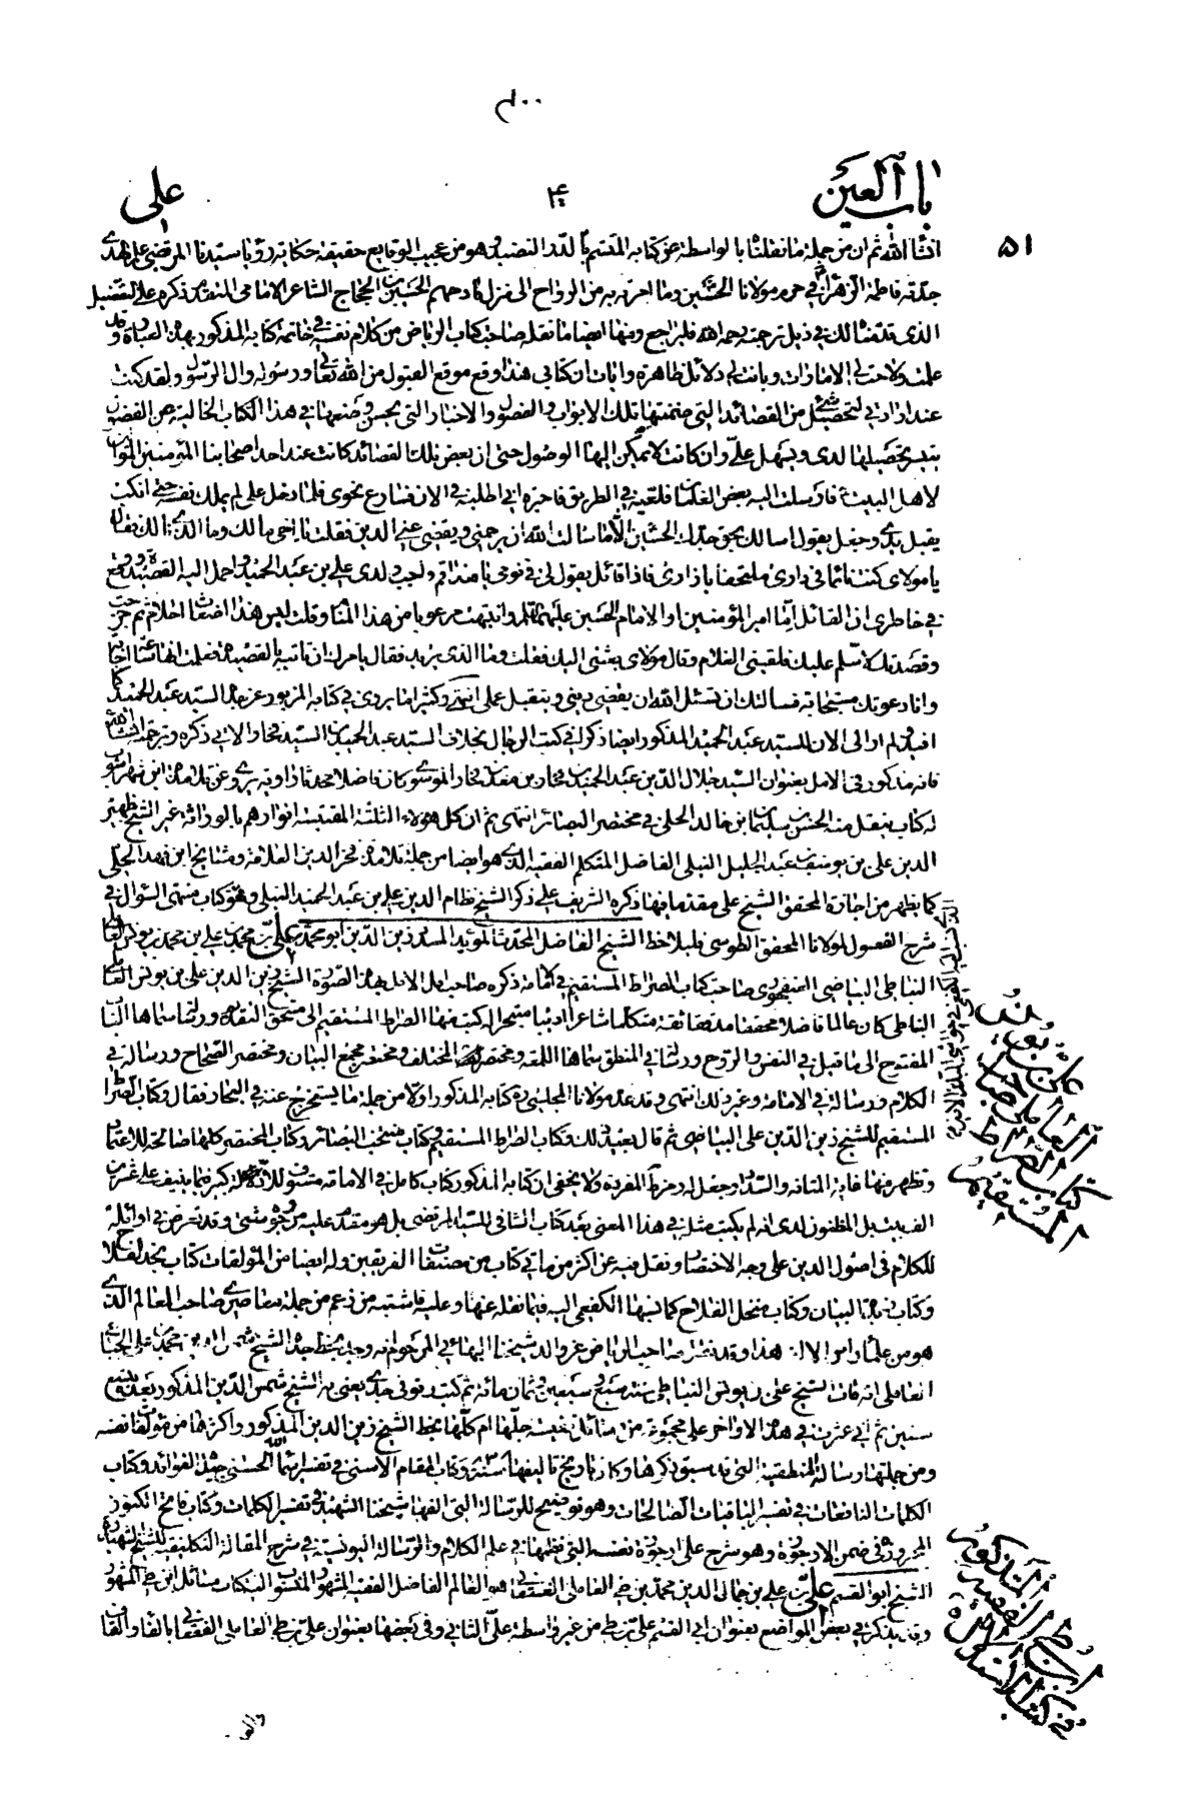 ٤٠٠
باب العين
٤
علي
٥١
انشاء الله ثم ان من جملة ما نقلنا بالواسطة عن كتابه المتسم بالدر النضيد وهو من عجيب الوقايع حقيقة حكاية رؤيا سيدنا المرتضى علم الهدى
جدته فاطمة الزهراء في حرم مولانا الحسين وما امرته به من الرواح الى منزل خادمهم الحسين بن الحجاج الشاعر الامامي المتقدم ذكره على التفصيل
الذي قدمنا لك في ذيل ترجمته رحمه الله فليراجع ومنها ايضا ما نقله صاحب كتاب الرياض من كلام نفسه في خاتمة كتابه المذكور بهذه العبارة وقد
علمت ولاحت لي الامارات وبانت لي دلائل ظاهرة وايات ان كتابي هذا وقع موقع القبول من الله تعالى ورسوله وال الرسول ولقد كنت
عند ارادتي لتحصيل شيء من القصائد التي ضمنتها تلك الابواب والفصول والاخبار التي يحسن وضعها في هذا الكتاب الخالية من الفضول
يتيسر تحصيلها لدي ويسهل علي وان كانت لا يمكن اليها الوصول حتى ان بعض تلك القصائد كانت عند احد اصحابنا المؤمنين الموالين
لاهل البيت فارسلت اليه بعض الغلمان فلقيه في الطريق فاخبره اني اطلبه في الان فسارع نحوي فلما دخل علي لم يملك نفسه حتى انكب
يقبل يدي وجعل يقول اسالك بحق جدك الحسين الا ما سالت الله ان يرحمني ويقضي عني الدين فقلت يا اخي مالك وما الذي نالك فقال
يا مولاي كنت نائما في داري ملتحفا بازاري فاذا قائل يقول لي في نومي يا هذا قم واجب ولدي علي بن عبد الحميد واحمل اليه القصيدة ووقع
في خاطري ان القائل اما امير المؤمنين او الامام الحسين عليهما السلم وانتبهت مرعوبا من هذا المنام وقلت ليس هذا اضغاث احلام ثم خرجت
وقصدتك لاسلم عليك فلقيني الغلام وقال مولاي بعثني اليك فقلت وما الذي يريد فقال يامرك ان تاتيه بالقصيدة فعلمت
وانا دعوتك مستجابة فسالتك ان تسئل الله ان يقضي ديني ويتقبل عملي انتهى وكثيرا ما يروى في كتابه المزبور عن جده السيد عبد الحميد كما
افيد ولم ار الى الان للسيد عبد الحميد المذكور ايضا ذكرا في كتب الرجال بخلاف السيد عبد الحميد بن السيد فخار الاتي ذكره وترجمته انشاء الله
فانه مذكور في الامل بعنوان السيد جلال الدين بن عبد الحميد بن فخار بن معد بن فخار الموسوي كان فاضلا محدثا راوية يروي عن تلامذة ابن شهراشوب
له كتاب ينقل منه الحسن بن سليمان بن خالد الحلي في مختصر البصائر انتهى ثم ان كل هؤلاء الثلثة المقتبسة انوارهم بالوراثة غير الشيخ ظهير
الدين علي بن يوسف بن عبد الجليل النيلي الفاضل المتكلم الفقيه الذي هو ايضا من جملة تلامذة فخر الدين العلامة ومشايخ ابن فهد الحلي
كما يظهر من اجازة المحقق الشيخ علي مقدما فيها ذكره الشريف على ذكر الشيخ نظام الدين علي بن عبد الحميد النيلي وهو كتاب منتهى السؤال في
شرح الفصول لمولانا المحقق الطوسي فليلاحظ الشيخ الفاضل المحدث المؤيد المسدد زين الدين ابو محمد علي بن محمد بن علي بن محمد بن يونس العاملي
النباطي البياضي العنفجوري صاحب كتاب الصراط المستقيم في الامامة ذكره صاحب امل الامل بهذه الصورة الشيخ زين الدين علي بن يونس العاملي
النباطي كان عالما فاضلا محققا مدققا ثقة متكلما شاعرا اديبا متبحرا له كتب منها الصراط المستقيم الى مستحق التقديم ورسالة سماها الباب
المفتوح الى ما قيل في النفس والروح ورسالة في المنطق سماها اللمعة ومختصر المختلف ومختصر مجمع البيان ومختصر الصحاح ورسالة في
الكلام ورسالة في الامامة وغير ذلك انتهى وقد عد مولانا المجلسي ره كتابه المذكور اولا من جملة ما يستخرج عنه في البحار فقال وكتاب الصراط
المستقيم للشيخ زين الدين علي البياضي ثم قال بعيد ذلك وكتاب الصراط المستقيم وكتاب منتخب البصائر وكتاب المحتضر كلها صالحة للاعتماد
وتظهر منها غاية المتانة والسداد وجعل له رمزا المفردة ولا يخفى ان كتابه المذكور كتاب كامل في الامامة مستوف للادلة كبير فيما ينيف على عشرين
الف بيت بل المظنون لدي انه لم يكتب مثله في هذا المعنى بعد كتاب الشافي للسيد المرتضى بل هو مقدم عليه من وجوه شتى وقد تعرض في اوائله
للكلام في اصول الدين على وجه الاختصار ونقل فيه عن اكثر من مائتي كتاب من مصنفات الفريقين وله ايضا من المؤلفات كتاب نجد الفلاح
وكتاب زبدة البيان وكتاب منخل الفلاح كما نسبها الكفعمي اليه فيما نقله عنها وعليه فاشتبه من زعم من جملة معاصري صاحب المعالم الذي
هو من علماء امر الالف هذا وقد نقل صاحب الرياض عن والد شيخنا البهائي المرحوم انه وجد بخط جده الشيخ شمس الدين محمد بن علي الجباعي
العاملي انه مات الشيخ علي بن يونس النباطي سنة سبع وسبعين وثمان مائة ثم كتب وتوفي جدي يعني به الشيخ شمس الدين المذكور بعده بتسع
سنين ثم اني عثرت في هذه الاواخر على مجموعة من رسائل نفيسة جلها ام كلها بخط الشيخ زين الدين المذكور واكثرها من مؤلفات نفسه
ومن جملتها رسالة المنطقية التي قد سبق ذكرها وكان تاريخ تاليفها سنة وكتاب المقام الاسنى في تفسير اسماء الله الحسنى جيد الفوائد وكتاب
الكلمات النافعات في تفسير الباقيات الصالحات وهو توضيح للرسالة التي الفها شيخنا الشهيد في تفسير الكلمات وكتاب فاتح الكنوز
المحروزة في ضمن الارجوزة وهو شرح على ارجوزة نفسه التي نظمها في علم الكلام والرسالة اليونسية في شرح المقالة التكليفية للشيخ الشهيد ره
الشيخ ابو القسم علي بن علي بن جمال الدين محمد بن طي العاملي الفقعاني هو العالم الفاضل الفقيه المشهور المنسوب اليه كتاب مسائل ابن طي المشهور
وقد يذكر في بعض المواضع بعنوان ابي القسم علي بن طي من غير واسطة علي الثاني وفي بعضها بعنوان علي بن طي العاملي الفقعاني بالفاء والقاف
علي بن يونس
العاملي صاحب
كتاب الصراط
المستقيم
ابن طي الفقيه المذكور
في كتب الاستدلال
والعين